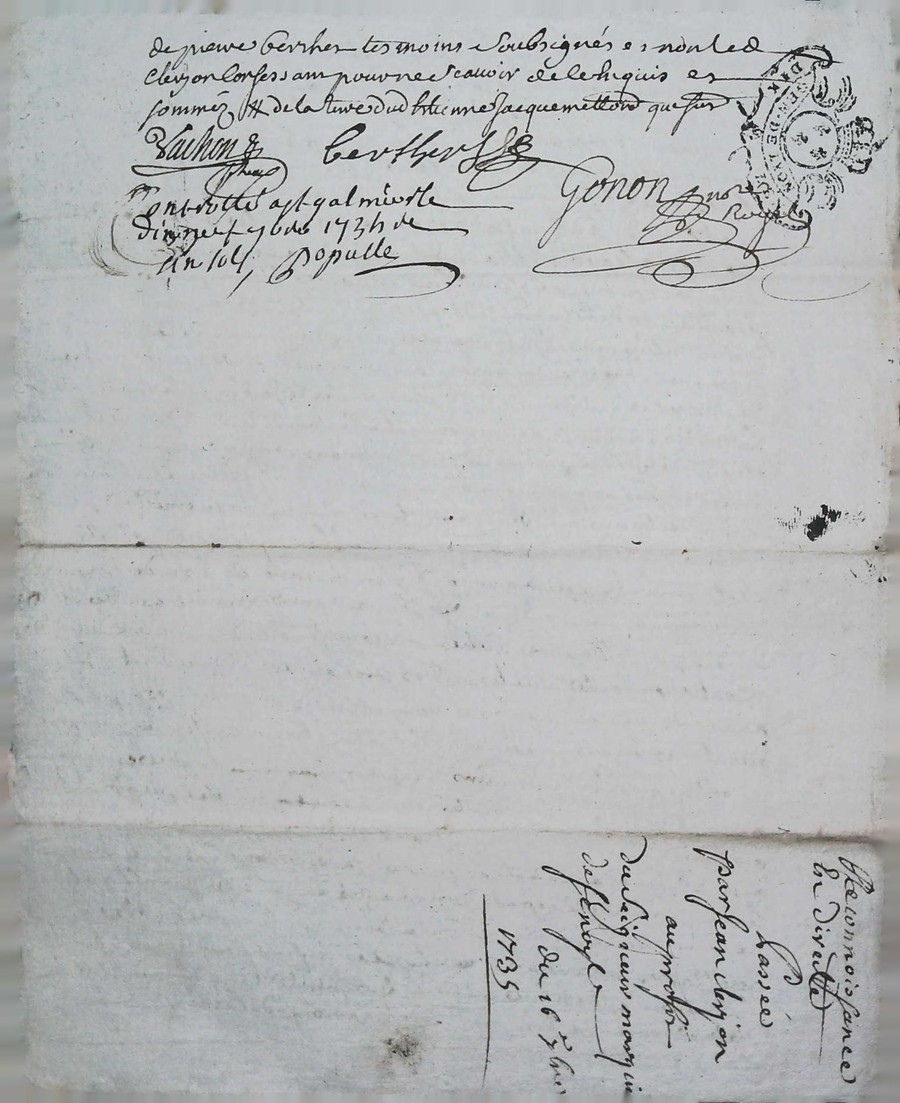 de pierre berther tesmoins soubsignés et non led
cleyjon Confessam pour ne scavoir de le Requis et
sommez # de la terre dud Estienne Jacquemettond que sur
Vachon
berther
Gonon no.re Royal
Controllé a st galmier le
dix neuf 9bre 1734 Re
un sol, Populle
GEN DE
Reconnoissance
En directte
Passée
par Jean cleyjon
au profit
du seigneur marquis
de
du 16 9bre
1735